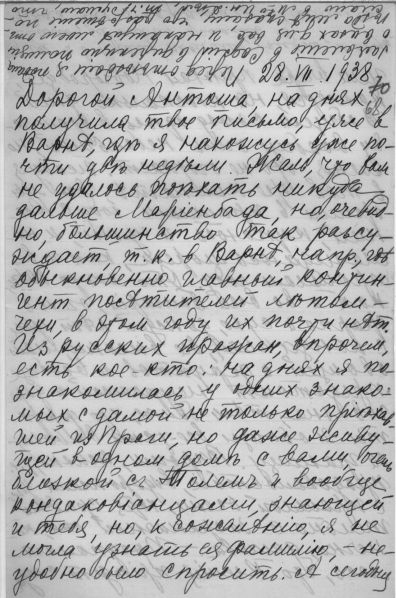 28. VII 1938
Дорогой Антоша, на днях
получила твое письмо, уже в
Варнѣ, гдѣ я нахожусь уже по-
чти двѣ недѣли. Жаль, что вам
не удалось поѣхать никуда
дальше Маріенбада, но, очевид-
но, большинство так разсу-
ждает, т.к. в Варнѣ, напр., гдѣ
обыкновенно главный контин-
гент посѣтителей лѣтом –
чехи, в этом году их почти нѣт.
Из русских пражан, впрочем,
есть кое-кто: на днях я по-
знакомилась у одних знако-
мых с дамой не только пріѣхав-
шей из Праги, но даже живу-
щей в одном домѣ с вами, очень
близкой с Толем и вообще
кондаковіанцами, знающей
и тебя, но, к сожалѣнію, я не
могла узнать ея фамилію, – не-
удобно было спросить. А сегодня